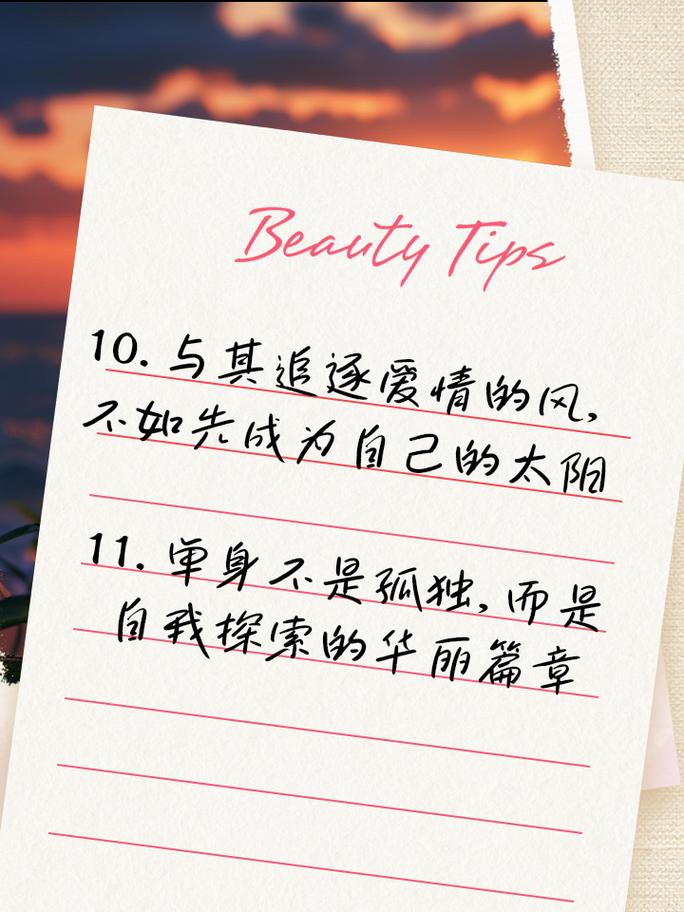 Beauty Tips
10. 与其追逐爱情的风,
不如先成为自己的太阳
11. 单身不是孤独, 而是
自我探索的华丽篇章